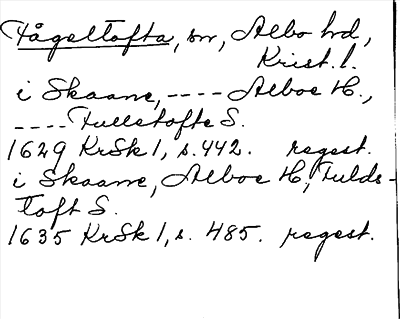 Fågeltofta, sn, Albo hd,
Krist. l.
i Skaane, ---- Alboe H.,
---- Fullstofte S.
1629 KrSk 1, s. 442. regest.
i Skaane, Alboe H., Fulds-
toft S.
1635 KrSk 1, s. 485. regest.